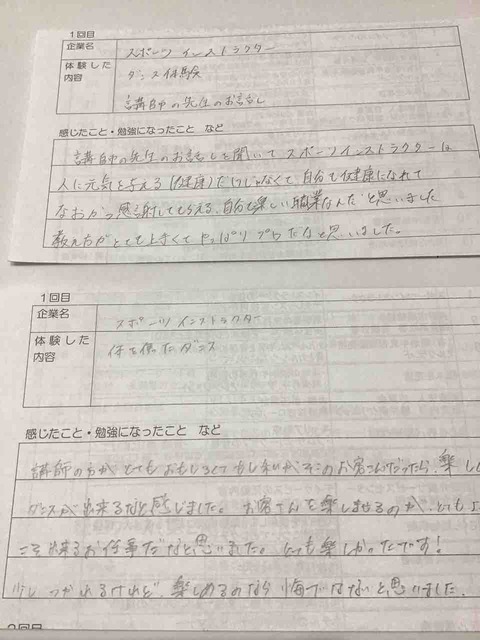 1回目
企業名
スポーツインストラクター
体験した
内容
ダンス体験
講師の先生のお話し
感じたこと・勉強になったこと など
講師の先生のお話しを聞いてスポーツインストラクターは
人に元気を与える(健康)だけじゃなくて、自分も健康になれて
なおかつ感謝してもらえる、自分も楽しい職業なんだと思いました
教え方がとても上手くてやっぱりプロだなと思いました。
1回目
企業名
スポーツインストラクター
体験した
内容
体を使ったダンス
感じたこと・勉強になったこと など
講師の方がとてもおもしろくてもし私がそのお客さんだったら、楽し
ダンスが出来るなと感じました。お客さんを楽しませるのが、とても
こそ出来るお仕事だなと思いました。とても楽しかったです!
少しつかれるけれど、楽しめるのなら悔ではないと思いました。
2回目